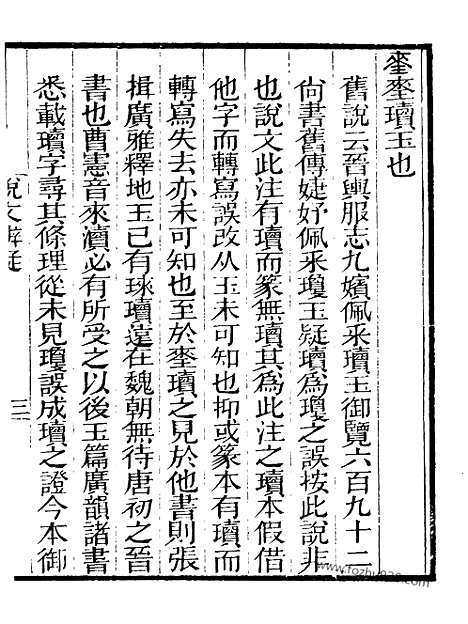 瓊瓊瓄玉也
舊說云晉輿服志九嬪佩采瓄玉御覽六百九十二
尙書舊傳婕妤佩采瓊玉疑瓄爲瓊之誤按此說非
也說文此注有瓄而篆無瓄其爲此注之瓄本假借
他字而轉寫誤改从玉未可知也抑或篆本有瓄而
轉寫失去亦未可知也至於瓄之見於他書則張
揖廣雅釋地玉已有琜瓄遠在魏朝無待唐初之晉
書也曹憲音來瀆必有所受之以後玉篇廣韻諸書
悉載瓄字尋其條理從未見瓊誤成瓄之證今本御
三
www.fozhu920.com